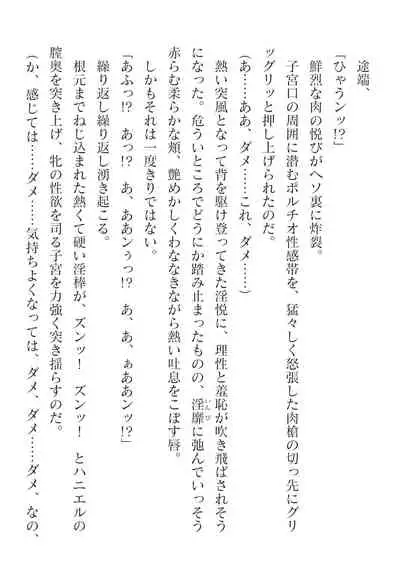 途端、
「ひゃうンッ!?」
鮮烈な肉の悦びがヘソ裏に炸裂。
子宮口の周囲に潜むポルチオ性感帯を、猛々しく怒張した肉槍の切っ先にグリ
ッグリッと押し上げられたのだ。
(あ……ああ、ダメ……これ、ダメ……)
熱い突風となって背を駆け登ってきた淫悦に、理性と羞恥が吹き飛ばされそう
になった。危ういところでどうにか踏み止まったものの、淫靡に弛んでいっそう
赤らむ柔らかな頬、艶めかしくわななきながら熱い吐息をこぼす唇。
しかもそれは一度きりではない。
「あふっ!?　あっ?　あ、ああンぅっ!?　あ、あ、ぁああンッ!?」
繰り返し繰り返し湧き起こる。
根元までねじ込まれた熱くて硬い淫棒が、ズンッ!　ズンッ!　とハニエルの
膣奥を突き上げ、牝の性欲を司る子宮を力強く突き揺らすのだ。
(か、感じては……ダメ……気持ちよくなっては、ダメ、ダメ……ダメ、なの、